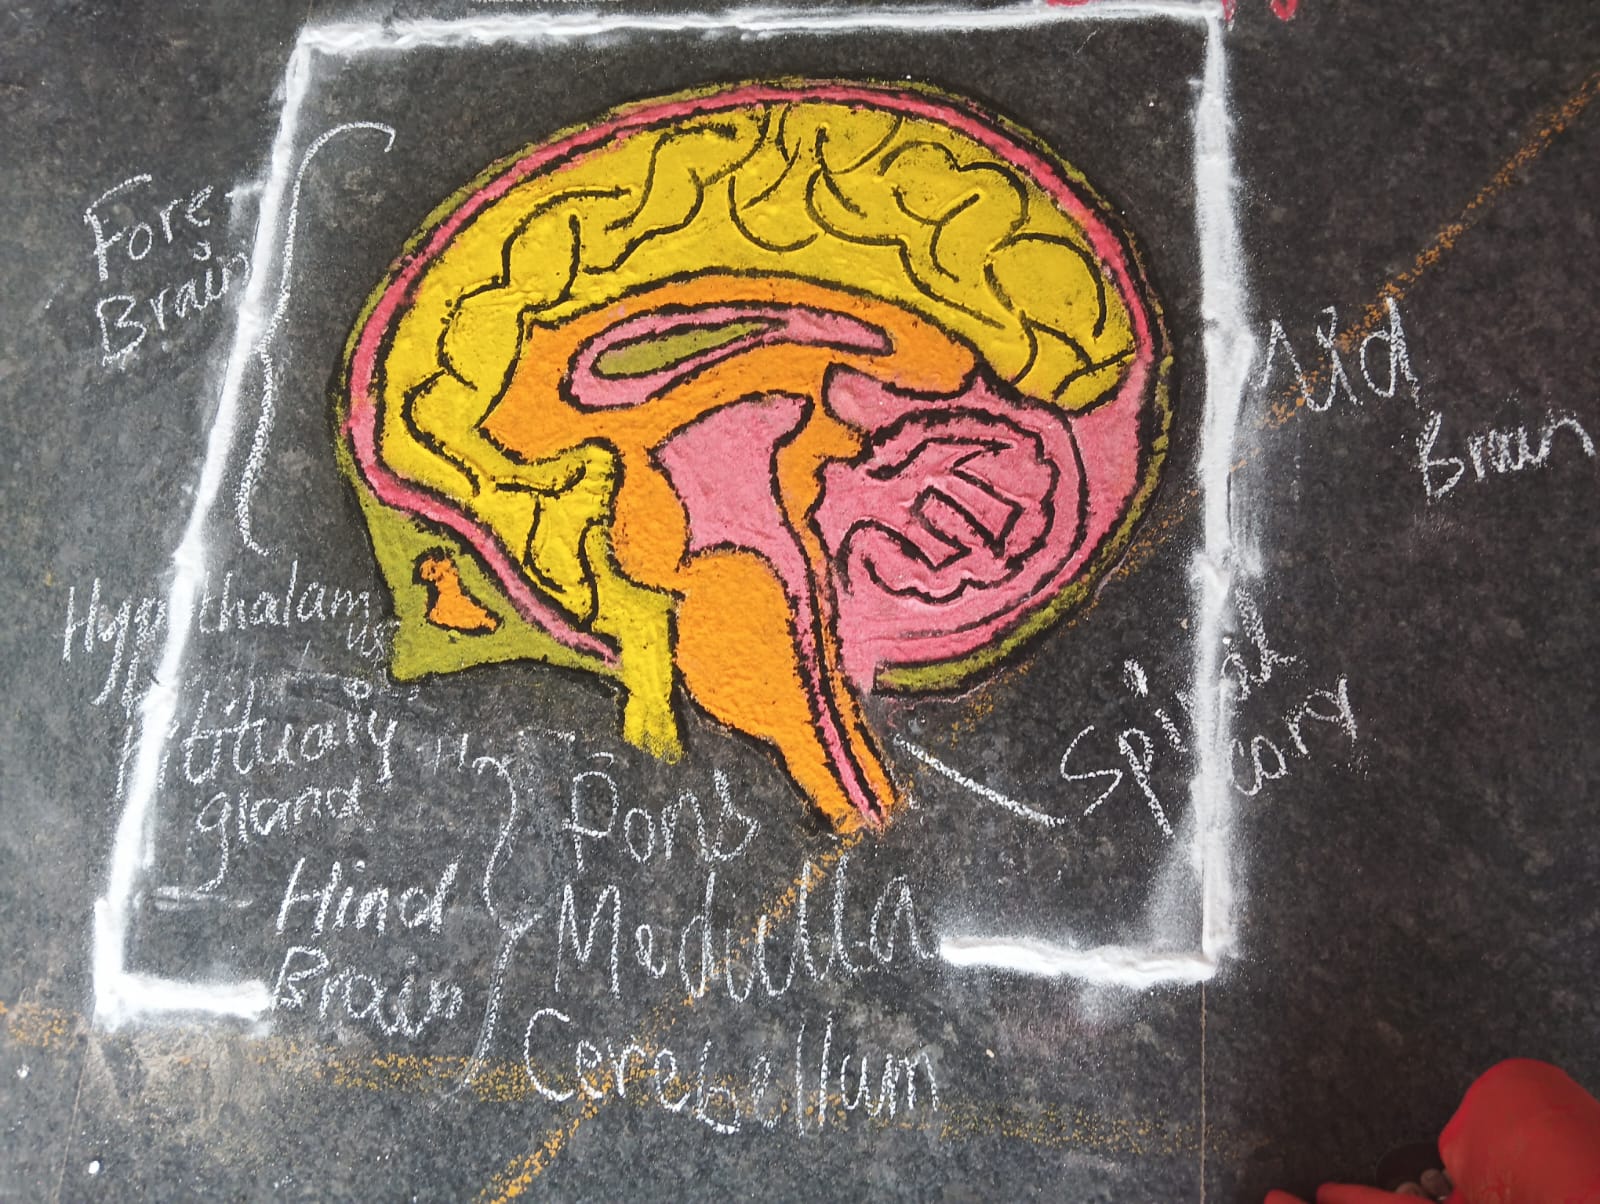 Fore-
Brain
Mid
Brain
Hypothalam
us
Pitituary
gland
Spinal
Hind
Brain
Pons
Medulla
Cerebellum